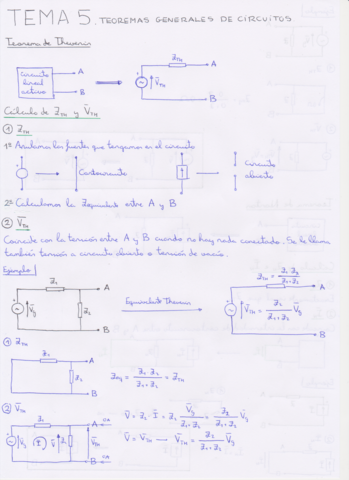 TEMA 5. TEOREMAS GENERALES DE CIRCUITOS
Teorema de Thevenin
Circuito lineal activo
A
B
Z_TH
A
V̄_TH
B
Cálculo de Z_TH y V̄_TH
① Z_TH
1º Anulamos las fuentes que tengamos en el circuito
Cortocircuito
Circuito abierto
2º Calculamos la Z equivalente entre A y B
② V̄_TH
Coincide con la tensión entre A y B cuando no hay nada conectado. Se le llama
también tensión a circuito abierto o tensión de vacío.
Ejemplo
Z₁
A
V̄g
Z₂
B
Equivalente Thevenin
Z_TH = Z₁ Z₂ / Z₁+Z₂
A
V̄_TH = Z₂ / Z₁+Z₂ V̄g
B
① Z_TH
Z₁
A
Z₂
B
Zeq = Z₁ · Z₂ / Z₁+Z₂ = Z_TH
② V̄_TH
Z₁
A
V̄g
I
V̄
Z₂
V̄_TH
B
V̄ = Z₂ · Ī = Z₂ V̄g / Z₁+Z₂ = Z₂ / Z₁+Z₂ V̄g
V̄ = V̄_TH — V̄_TH = Z₂ / Z₁+Z₂ V̄g